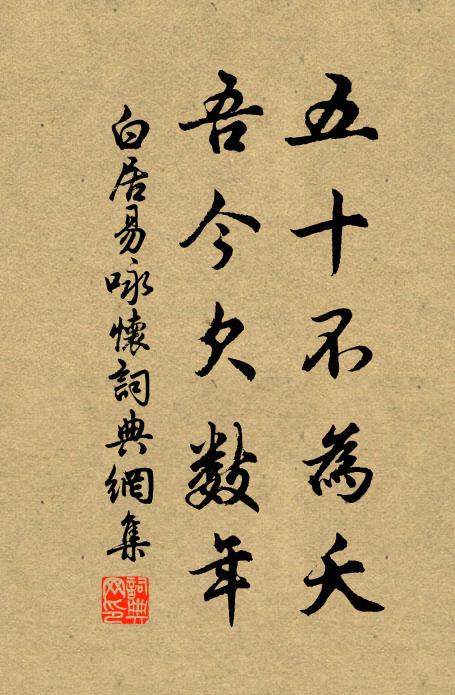 五十不為夭
吾今欠數年
白居易咏懷詞典網集
詞典网印